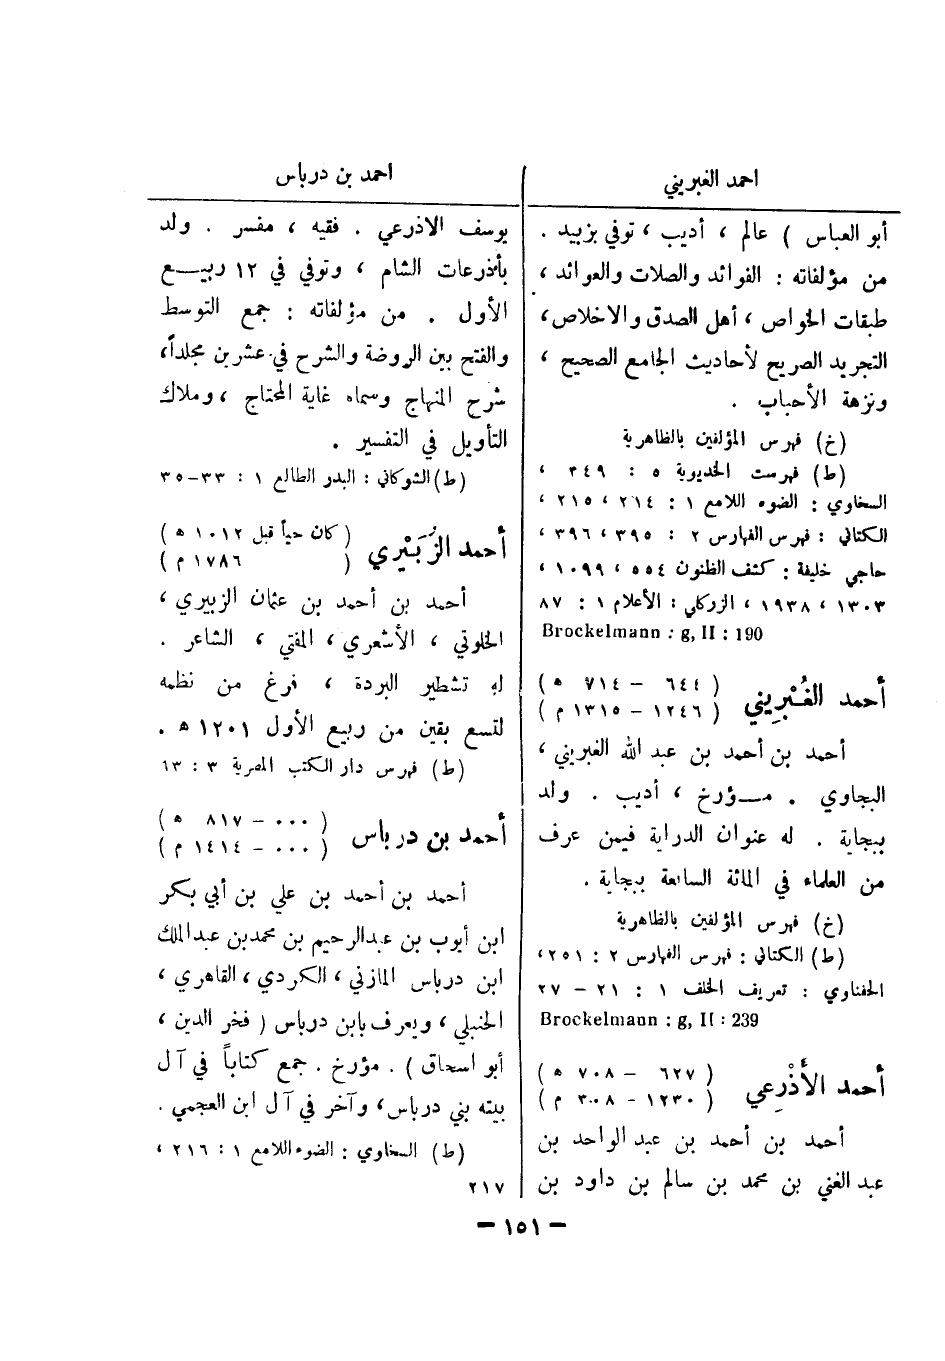 احمد الغبريني
أبو العباس ) عالم ، أديب ، توفي بزبيد .
من مؤلفاته : الفوائد والصلات والعوائد ،
طبقات الخواص ، أهل الصدق والاخلاص ،
التجريد الصريح لأحاديث الجامع الصحيح ،
ونزهة الأحباب .
(خ) فهرس المؤلفين بالظاهرية
(ط) فهرست الخديوية ٥ : ٢٤٩ ،
السخاوي : الضوء اللامع ١ : ٢١٤ ، ٢١٥ ،
الكتاني : فهرس الفهارس ٢ : ٣٩٥ ، ٣٩٦ ،
حاجي خليفة : كشف الظنون ٥٥٤ ، ١٠٩٩ ،
١٣٠٣ ، ١٩٣٨ ، الزركلي : الأعلام ١ : ٨٧
Brockelmann : g, II : 190
أحمد الغُبْرِيني ( ٦٤٤ – ٧١٤ ه )
( ١٢٤٦ – ١٣١٥ م )
أحمد بن أحمد بن عبد الله الغبريني ،
البجاوي . مــؤرخ ، أديب . ولد
ببجاية . له عنوان الدراية فيمن عرف
من العلماء في المائة السابعة ببجاية .
(خ) فهرس المؤلفين بالظاهرية
(ط) الكتاني : فهرس الفهارس ٢ : ٢٥١ ،
الحفناوي : تعريف الخلف ١ : ٢١ – ٢٧
Brockelmann : g, II : 239
أحمد الأَذْرِعي ( ٦٢٧ – ٧٠٨ ه )
( ١٢٣٠ – ١٣٠٨ م )
أحمد بن أحمد بن عبد الواحد بن
عبد الغني بن محمد بن سالم بن داود بن
احمد بن درباس
يوسف الاذرعي . فقيه ، مفسر . ولد
بأذرعات الشام ، وتوفي في ١٢ ربيــع
الأول . من مؤلفاته : جمع التوسط
والفتح بين الروضة والشرح في عشرين مجلداً،
شرح المنهاج وسماه غاية المحتاج ، وملاك
التأويل في التفسير .
(ط) الشوكاني : البدر الطالع ١ : ٣٣-٣٥
أحمد الزُبَيْري ( كان حياً قبل ١٠١٢ ه )
( ١٧٨٦ م )
أحمد بن أحمد بن عثمان الزبيري ،
الخلوتي ، الأشعري ، المفتي ، الشاعر .
له تشطير البردة ، فرغ من نظمه
لتسع بقين من ربيع الأول ١٢٠١ ه .
(ط) فهرس دار الكتب المصرية ٣ : ٦٣
أحمد بن درباس ( ٠٠٠ – ٨١٧ ه )
( ٠٠٠ – ١٤١٤ م )
أحمد بن أحمد بن علي بن أبي بكر
ابن أيوب بن عبدالرحيم بن محمدبن عبدالملك
ابن درباس المازني ، الكردي ، القاهري ،
الحنبلي ، ويعرف بابن درباس ( فخر الدين ،
أبو اسحاق ) . مؤرخ . جمع كتاباً في آل
بيته بني درباس، وآخر في آل ابن العجمي .
(ط) السخاوي : الضوء اللامع ١ : ٢١٦ ،
٢١٧
– ١٥١ –